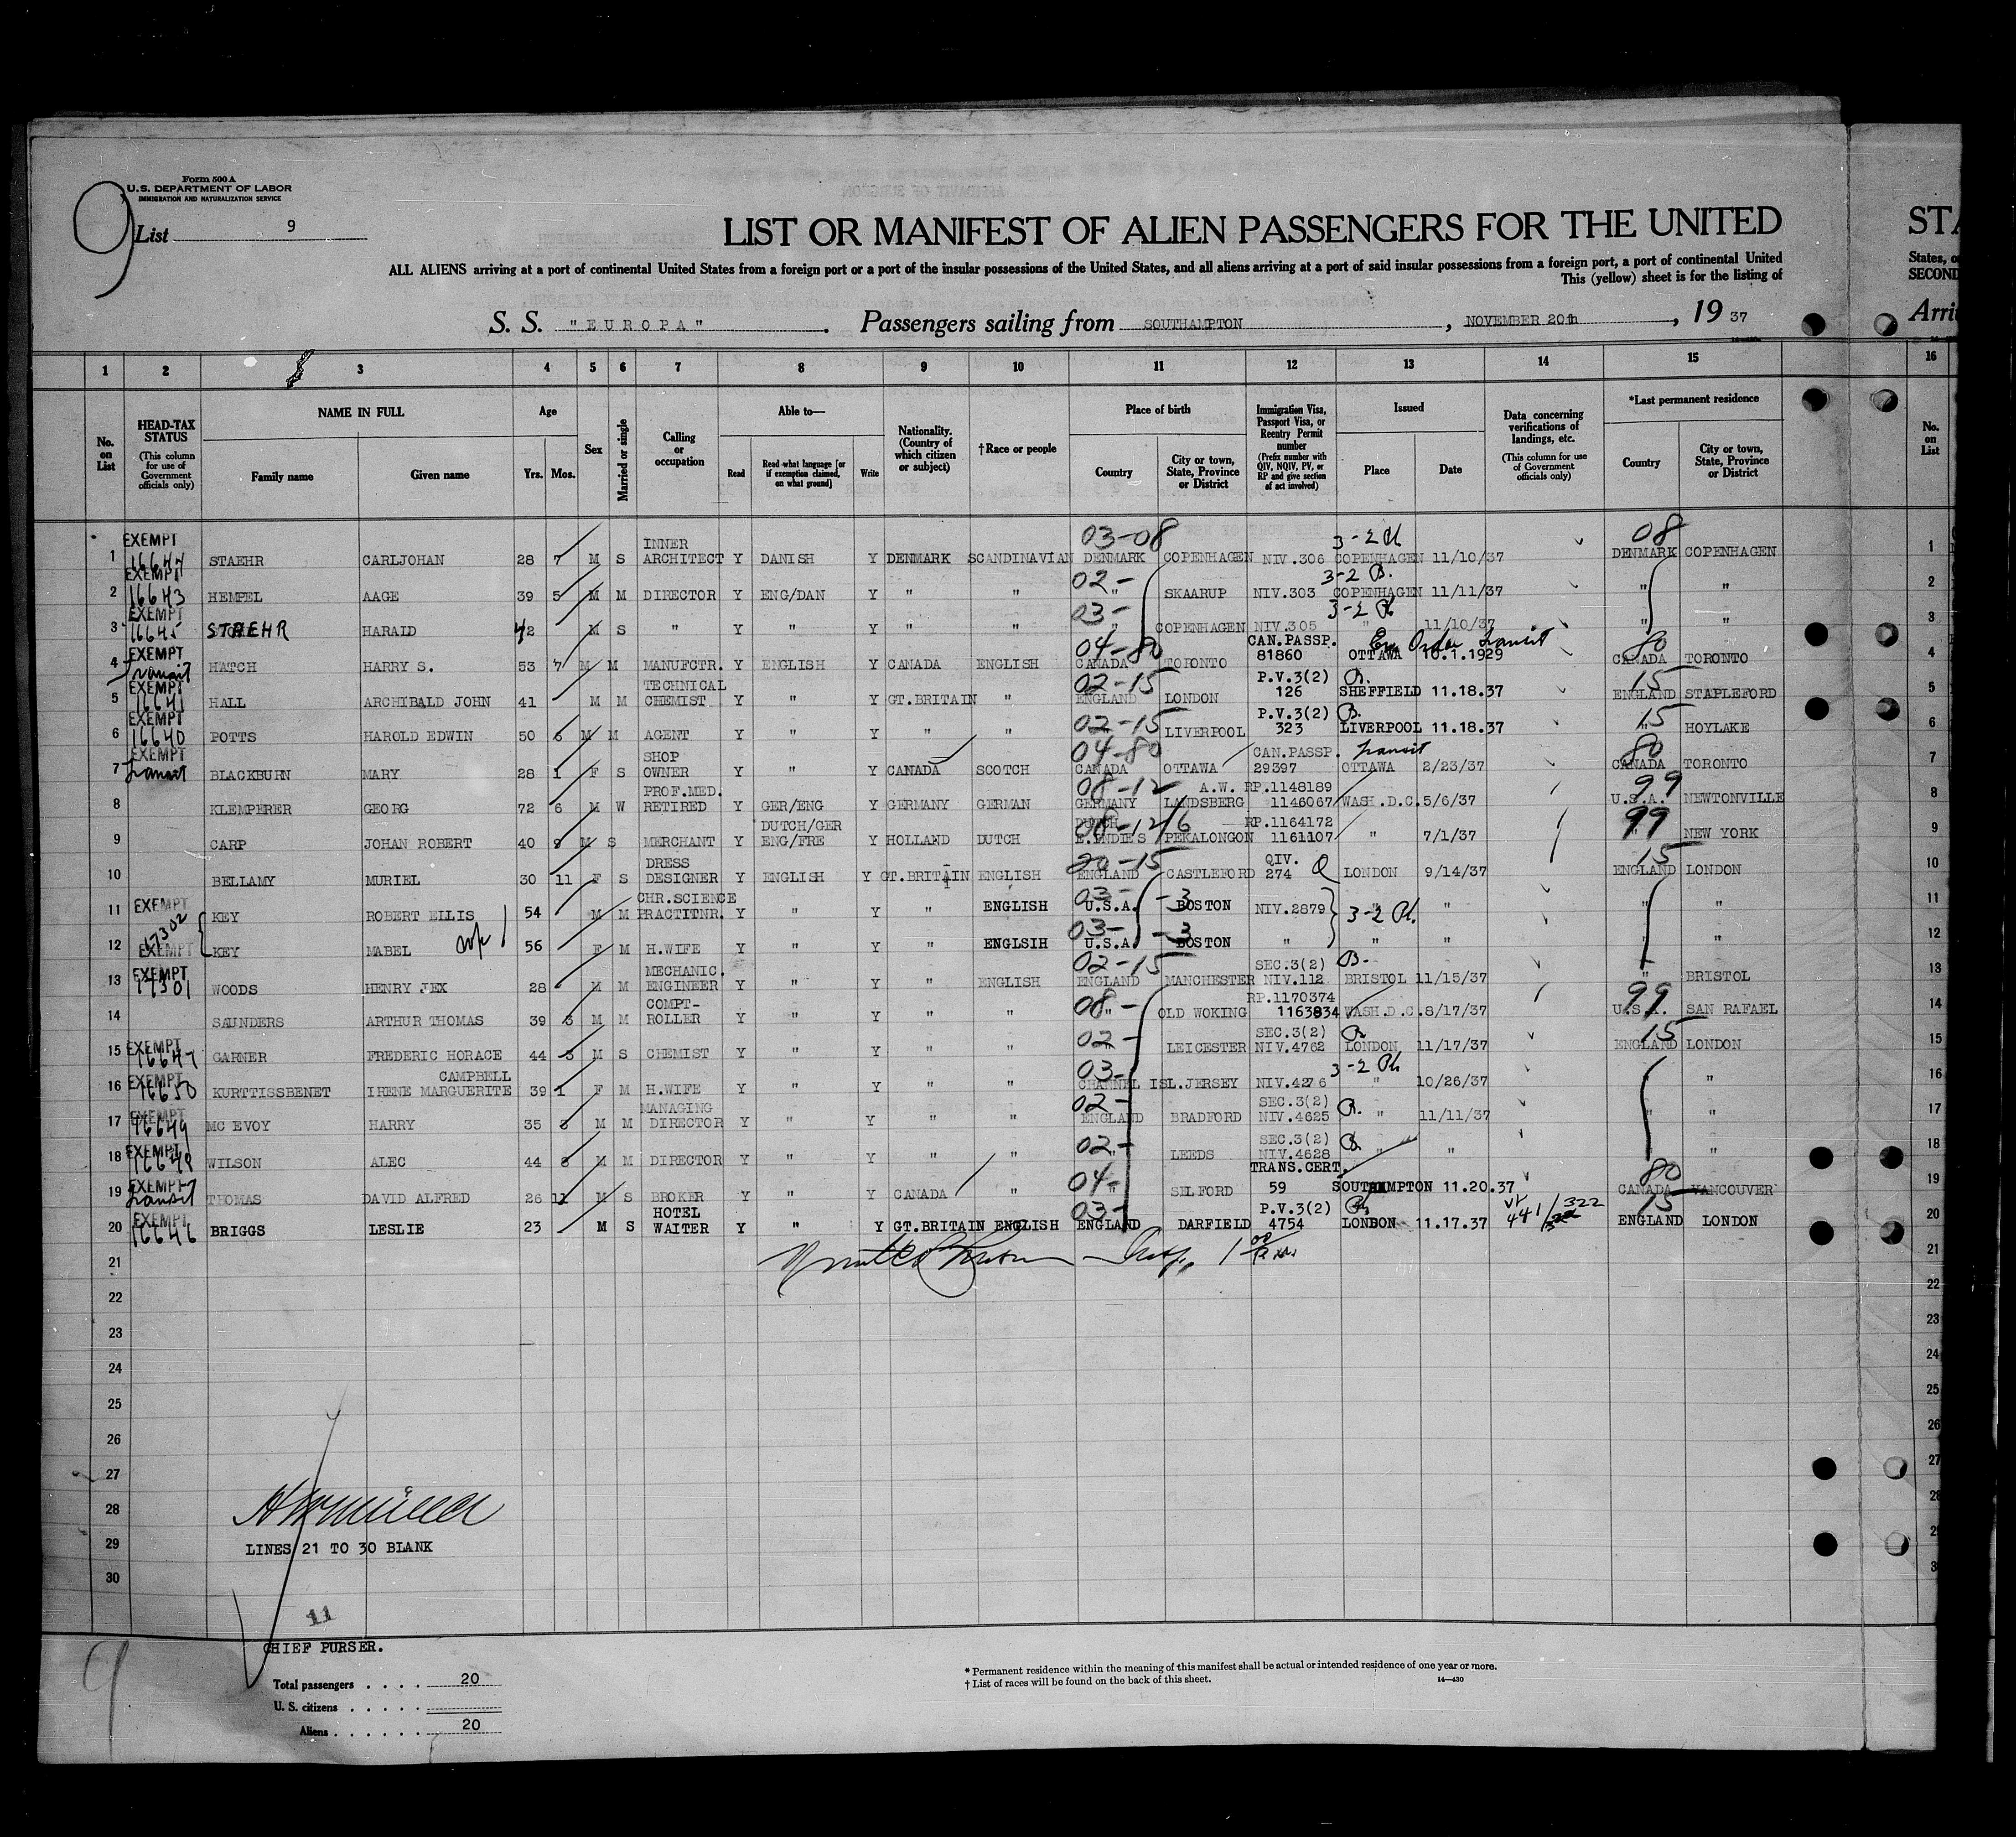 Form 500 A
U.S. DEPARTMENT OF LABOR
IMMIGRATION AND NATURALIZATION SERVICE
9
List 9
LIST OR MANIFEST OF ALIEN PASSENGERS FOR THE UNITED
STA
ALL ALIENS arriving at a port of continental United States from a foreign port or a port of the insular possessions of the United States, and all aliens arriving at a port of said insular possessions from a foreign port, a port of continental United
States, o
This (yellow) sheet is for the listing of
SECOND
S. S. "EUROPA". Passengers sailing from SOUTHAMPTON, NOVEMBER 20th, 19 37
Arri
1 2 3 4 5 6 7 8 9 10 11 12 13 14 15 16
No. on List
HEAD-TAX STATUS (This column for use of Government officials only)
NAME IN FULL
Family name Given name
Age
Yrs. Mos.
Sex
Married or single
Calling or occupation
Able to—
Read Read what language [or if exemption claimed, on what ground] Write
Nationality. (Country of which citizen or subject)
†Race or people
Place of birth
Country City or town, State, Province or District
Immigration Visa, Passport Visa, or Reentry Permit number (Prefix number with QIV, NQIV, PV, or RP and give section of act involved)
Issued
Place Date
Data concerning verifications of landings, etc. (This column for use of Government officials only)
*Last permanent residence
Country City or town, State, Province or District
No. on List
EXEMPT INNER 03-08 3-2 08
1 16644 STAEHR CARLJOHAN 28 7 M S ARCHITECT Y DANISH Y DENMARK SCANDINAVIAN DENMARK COPENHAGEN NIV.306 COPENHAGEN 11/10/37 DENMARK COPENHAGEN 1
EXEMPT 02- 3-2 B.
2 16643 HEMPEL AAGE 39 5 M M DIRECTOR Y ENG/DAN Y " " " SKAARUP NIV.303 COPENHAGEN 11/11/37 " " 2
EXEMPT 03- 3-2
3 16645 STAEHR HARALD 42 M S " Y " Y " " " COPENHAGEN NIV.305 " 11/10/37 " " 3
EXEMPT 04-80 CAN.PASSP. Ex Order transit 80
4 transit HATCH HARRY S. 53 7 M M MANUFCTR. Y ENGLISH Y CANADA ENGLISH CANADA TORONTO 81860 OTTAWA 10.1.1929 CANADA TORONTO 4
EXEMPT TECHNICAL 02-15 P.V.3(2) B. 15
5 16641 HALL ARCHIBALD JOHN 41 M M CHEMIST Y " Y GT.BRITAIN " ENGLAND LONDON 126 SHEFFIELD 11.18.37 ENGLAND STAPLEFORD 5
EXEMPT 02-15 P.V.3(2) B. 15
6 16640 POTTS HAROLD EDWIN 50 6 M M AGENT Y " Y " " " LIVERPOOL 323 LIVERPOOL 11.18.37 " HOYLAKE 6
EXEMPT SHOP 04-80 CAN.PASSP. transit 80
7 transit BLACKBURN MARY 28 1 F S OWNER Y " Y CANADA SCOTCH CANADA OTTAWA 29397 OTTAWA 2/23/37 CANADA TORONTO 7
PROF.MED. 08-12 A.W. RP.1148189 99
8 KLEMPERER GEORG 72 6 M W RETIRED Y GER/ENG Y GERMANY GERMAN GERMANY LANDSBERG 1146067 WASH.D.C. 5/6/37 U.S.A. NEWTONVILLE 8
DUTCH/GER DUTCH RP.1164172 99
9 CARP JOHAN ROBERT 40 9 M S MERCHANT Y ENG/FRE Y HOLLAND DUTCH E.INDIES PEKALONGON 1161107 " 7/1/37 " NEW YORK 9
DRESS 20-15 QIV. Q 15
10 BELLAMY MURIEL 30 11 F S DESIGNER Y ENGLISH Y GT.BRITAIN ENGLISH ENGLAND CASTLEFORD 274 LONDON 9/14/37 ENGLAND LONDON 10
EXEMPT CHR.SCIENCE 03- -3
11 KEY ROBERT ELLIS 54 M M PRACTITNR. Y " Y " ENGLISH U.S.A. BOSTON NIV.2879 3-2 " " " 11
17302 03- -3
12 EXEMPT KEY MABEL wife 56 F M H.WIFE Y " Y " ENGLSIH U.S.A. BOSTON " " " " 12
EXEMPT MECHANIC. 02-15 SEC.3(2) B-
13 17301 WOODS HENRY JEX 28 M M ENGINEER Y " Y " ENGLISH ENGLAND MANCHESTER NIV.112 BRISTOL 11/15/37 " BRISTOL 13
COMPT- 08- RP.1170374 99
14 SAUNDERS ARTHUR THOMAS 39 6 M M ROLLER Y " Y " " " OLD WOKING 1163834 WASH.D.C. 8/17/37 U.S.A. SAN RAFAEL 14
EXEMPT 02- SEC.3(2) B. 15
15 16647 GARNER FREDERIC HORACE 44 3 M S CHEMIST Y " Y " " " LEICESTER NIV.4762 LONDON 11/17/37 ENGLAND LONDON 15
EXEMPT CAMPBELL 03- 3-2
16 16650 KURTTISSBENET IRENE MARGUERITE 39 1 F M H.WIFE Y " Y " " CHANNEL ISL.JERSEY NIV.4276 " 10/26/37 " 16
EXEMPT MANAGING 02- SEC.3(2) B.
17 16649 MC EVOY HARRY 35 3 M M DIRECTOR Y " Y " " ENGLAND BRADFORD NIV.4625 " 11/11/37 " " 17
EXEMPT 02- SEC.3(2) B.
18 16648 WILSON ALEC 44 8 M M DIRECTOR Y " Y " " " LEEDS NIV.4628 " " " 18
EXEMPT 04- TRANS.CERT. 80
19 transit THOMAS DAVID ALFRED 26 11 M S BROKER Y " Y CANADA " " SELFORD 59 SOUTHAMPTON 11.20.37 CANADA VANCOUVER 19
EXEMPT HOTEL 03- P.V.3(2) 441/322 15
20 16646 BRIGGS LESLIE 23 M S WAITER Y " Y GT.BRITAIN ENGLISH ENGLAND DARFIELD 4754 LONDON 11.17.37 ENGLAND LONDON 20
21 21
22 22
23 23
24 24
25 25
26 26
27 27
28 28
29 LINES 21 TO 30 BLANK
30
11
CHIEF PURSER.
9
Total passengers . . . . 20
U. S. citizens . . . . .
Aliens . . . . . . 20
* Permanent residence within the meaning of this manifest shall be actual or intended residence of one year or more.
† List of races will be found on the back of this sheet.
14—430